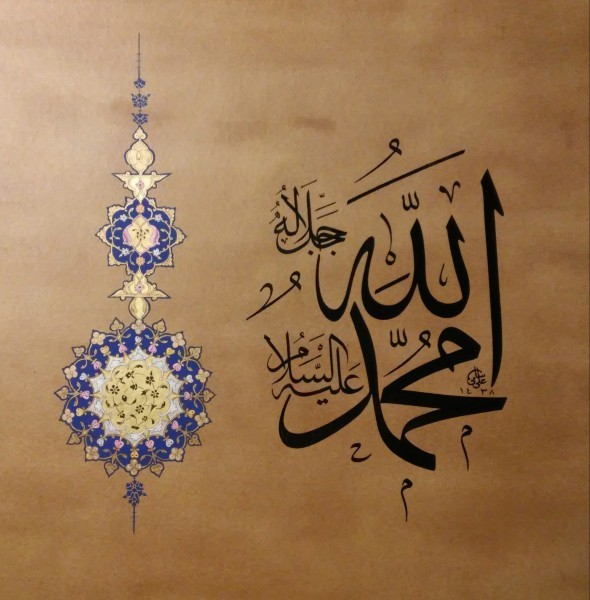 اللّٰه
جَلَّ جَلَالُهُ
مُحَمَّد
عَلَيْهِ السَّلَامُ
١٤٣٨